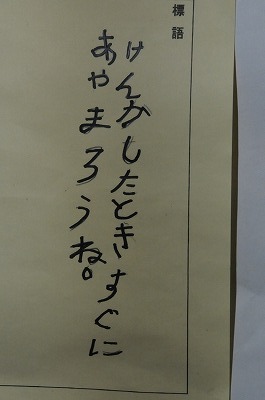 標語
けんかしたときすぐに
あやまろうね。